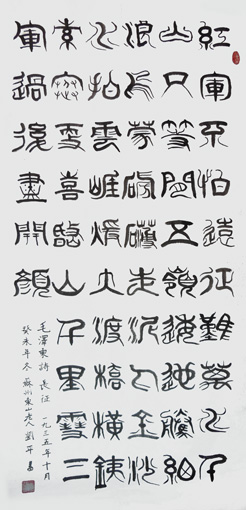 紅軍不怕遠征難萬水千
山只等閑五嶺逶迤騰細
浪烏蒙磅礴走泥丸金沙
水拍雲崖暖大渡橋橫鐵
索寒更喜岷山千里雪三
軍過後盡開顏
毛澤東詩 長征 一九三五年十月
癸未年冬 蘇州東山老人 劉